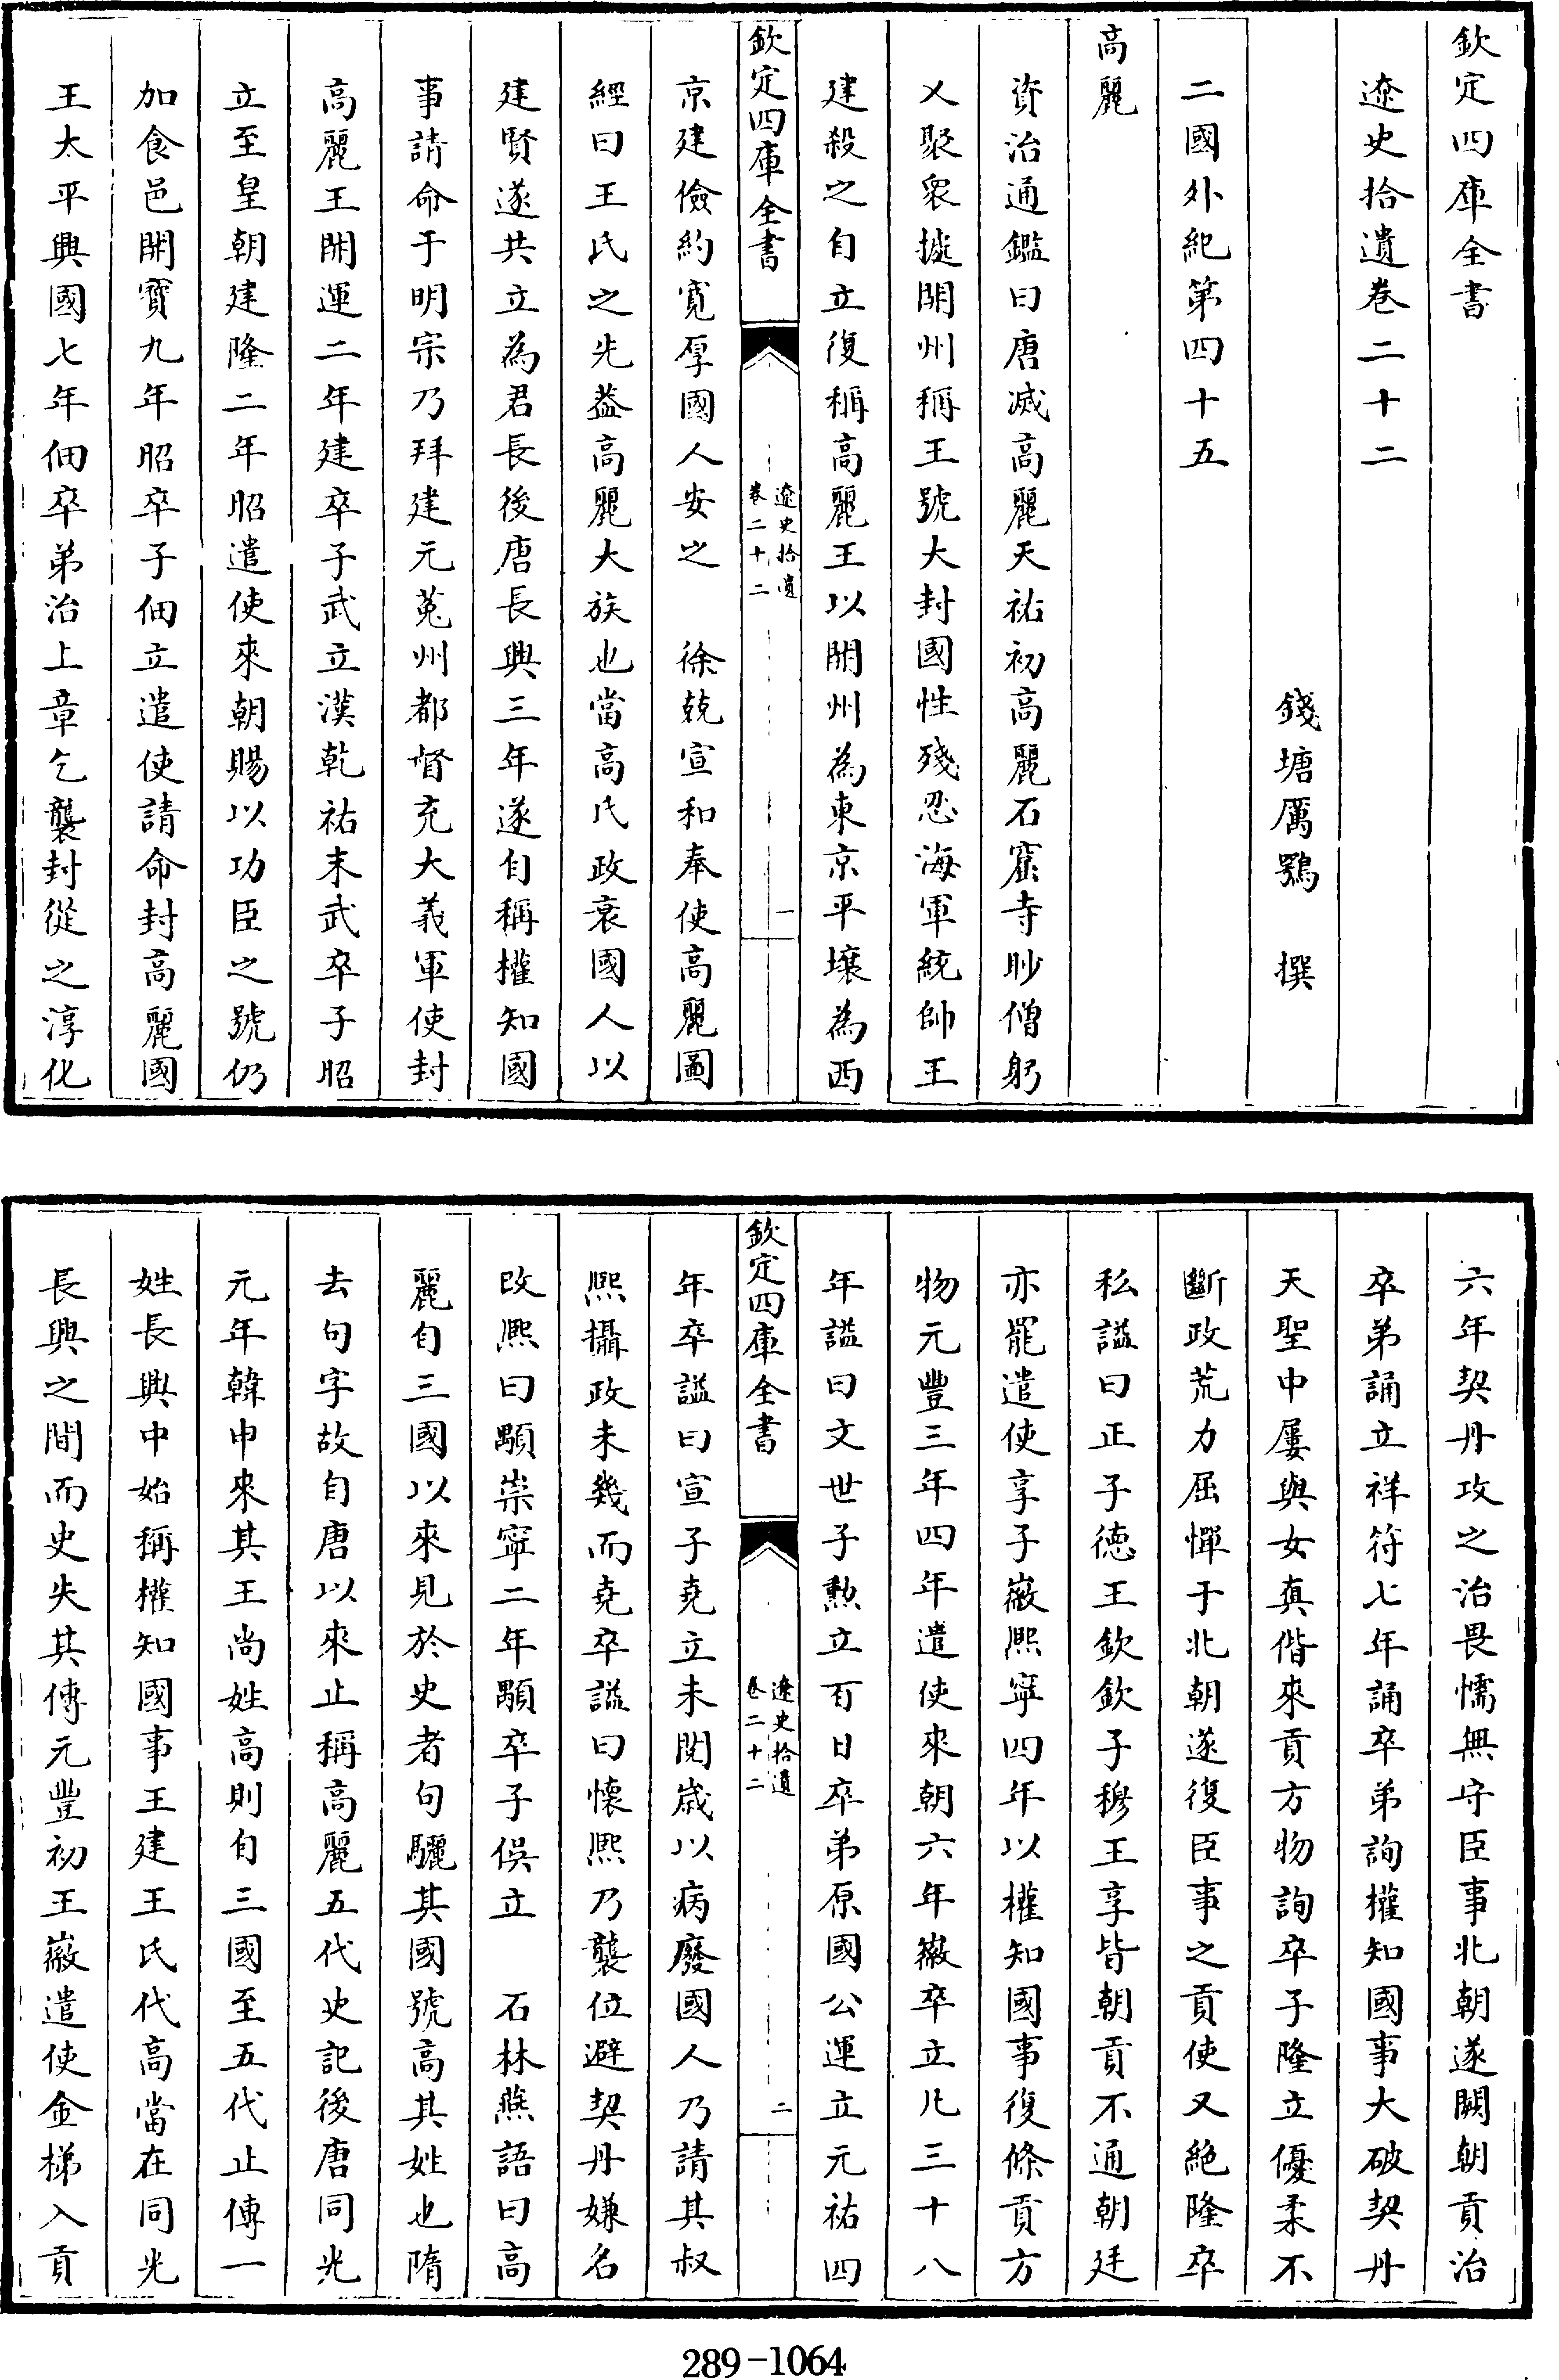 欽定四庫全書
遼史拾遺卷二十二
錢塘厲鶚 撰
二國外紀第四十五
高麗
資治通鑑曰唐滅高麗天祐初高麗石窟寺眇僧躬
乂聚衆據開州稱王號大封國性殘忍海軍統帥王
建殺之自立復稱高麗王以開州為東京平壤為西
欽定四庫全書
遼史拾遺
卷二十二
一
京建儉約寛厚國人安之 徐兢宣和奉使高麗圖
經曰王氏之先葢高麗大族也當高氏政衰國人以
建賢遂共立為君長後唐長興三年遂自稱權知國
事請命于明宗乃拜建元菟州都督充大義軍使封
高麗王開運二年建卒子武立漢乾祐末武卒子昭
立至皇朝建隆二年昭遣使來朝賜以功臣之號仍
加食邑開寳九年昭卒子伷立遣使請命封高麗國
王太平興國七年伷卒弟治上章乞襲封從之淳化
六年契丹攻之治畏懦無守臣事北朝遂闕朝貢治
卒弟誦立祥符七年誦卒弟詢權知國事大破契丹
天聖中屢與女真偕來貢方物詢卒子隆立優柔不
斷政荒力屈憚于北朝遂復臣事之貢使又絶隆卒
私謚曰正子德王欽欽子穆王享皆朝貢不通朝廷
亦罷遣使享子徽熙寧四年以權知國事復條貢方
物元豐三年四年遣使來朝六年徽卒立凡三十八
年謚曰文世子勲立百日卒弟原國公運立元祐四
欽定四庫全書
遼史拾遺
卷二十二
二
年卒謚曰宣子堯立未閱歳以病廢國人乃請其叔
熙攝政未幾而堯卒謚曰懷熙乃襲位避契丹嫌名
改熙曰顒崇寧二年顒卒子俁立 石林燕語曰高
麗自三國以來見於史者句驪其國號高其姓也隋
去句字故自唐以來止稱高麗五代史記後唐同光
元年韓申來其王尚姓高則自三國至五代止傳一
姓長興中始稱權知國事王建王氏代高當在同光
長興之間而史失其傳元豐初王徽遣使金梯入貢
289-1064